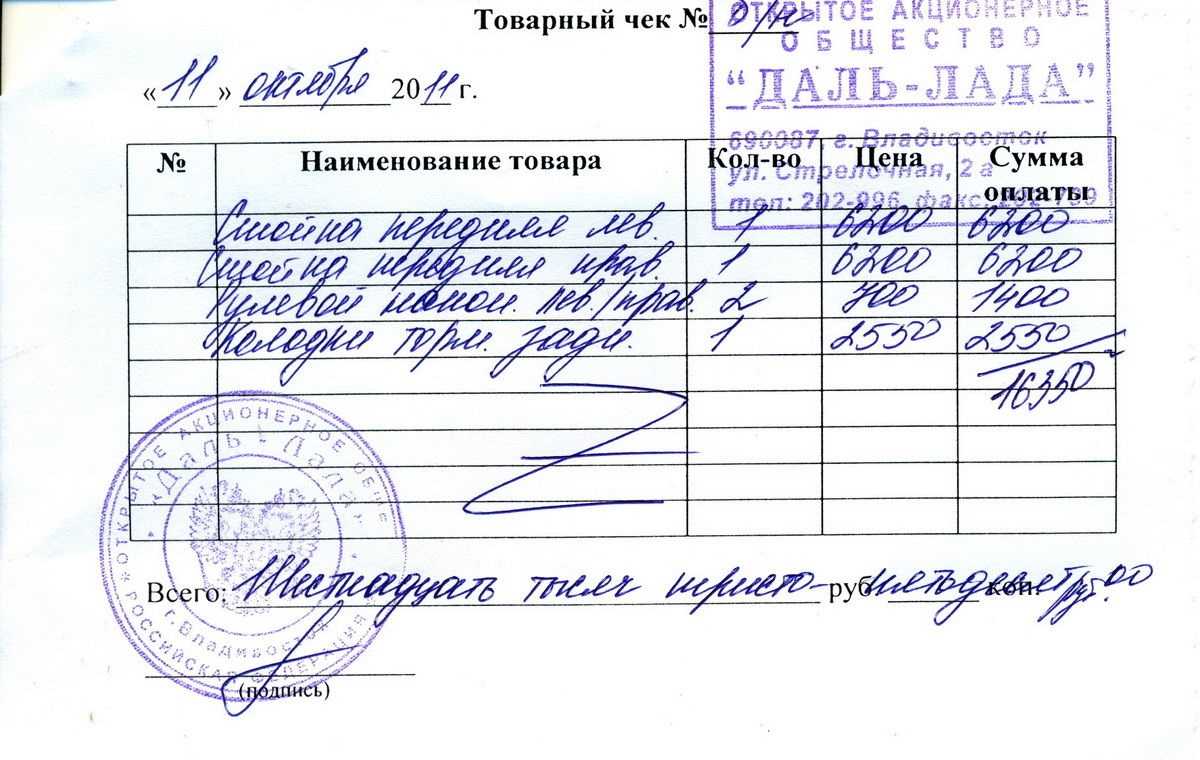 Товарный чек № б/н
ОТКРЫТОЕ АКЦИОНЕРНОЕ
ОБЩЕСТВО
"ДАЛЬ-ЛАДА"
690087, г. Владивосток
ул. Стрелочная, 2 а
тел: 202-996, факс: 202-799
«11» октября 2011 г.
№ Наименование товара Кол-во Цена Сумма оплаты
Стойка передняя лев. 1 6200 6200
Стойка передняя прав. 1 6200 6200
Рулевой након. лев./прав. 2 700 1400
Колодки торм. задн. 1 2550 2550
16350
ОТКРЫТОЕ АКЦИОНЕРНОЕ ОБЩЕ
"Даль-Лада"
г. Владивосток
РОССИЙСКАЯ ФЕДЕРАЦИЯ
Всего: Шестнадцать тысяч триста пятьдесят руб. 00 коп.
(подпись)